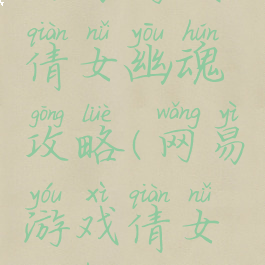 qiàn nǚ yōu hún
倩女幽魂
gōng lüè wǎng yì
攻略(网易
yóu xì qiàn nǚ
游戏倩女